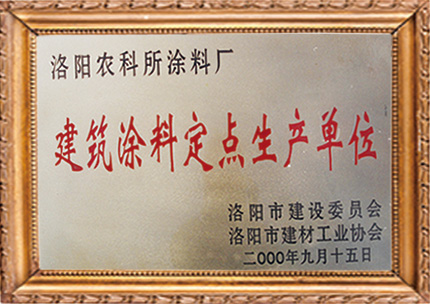 洛阳农科所涂料厂
建筑涂料定点生产单位
洛阳市建设委员会
洛阳市建材工业协会
二000年九月十五日